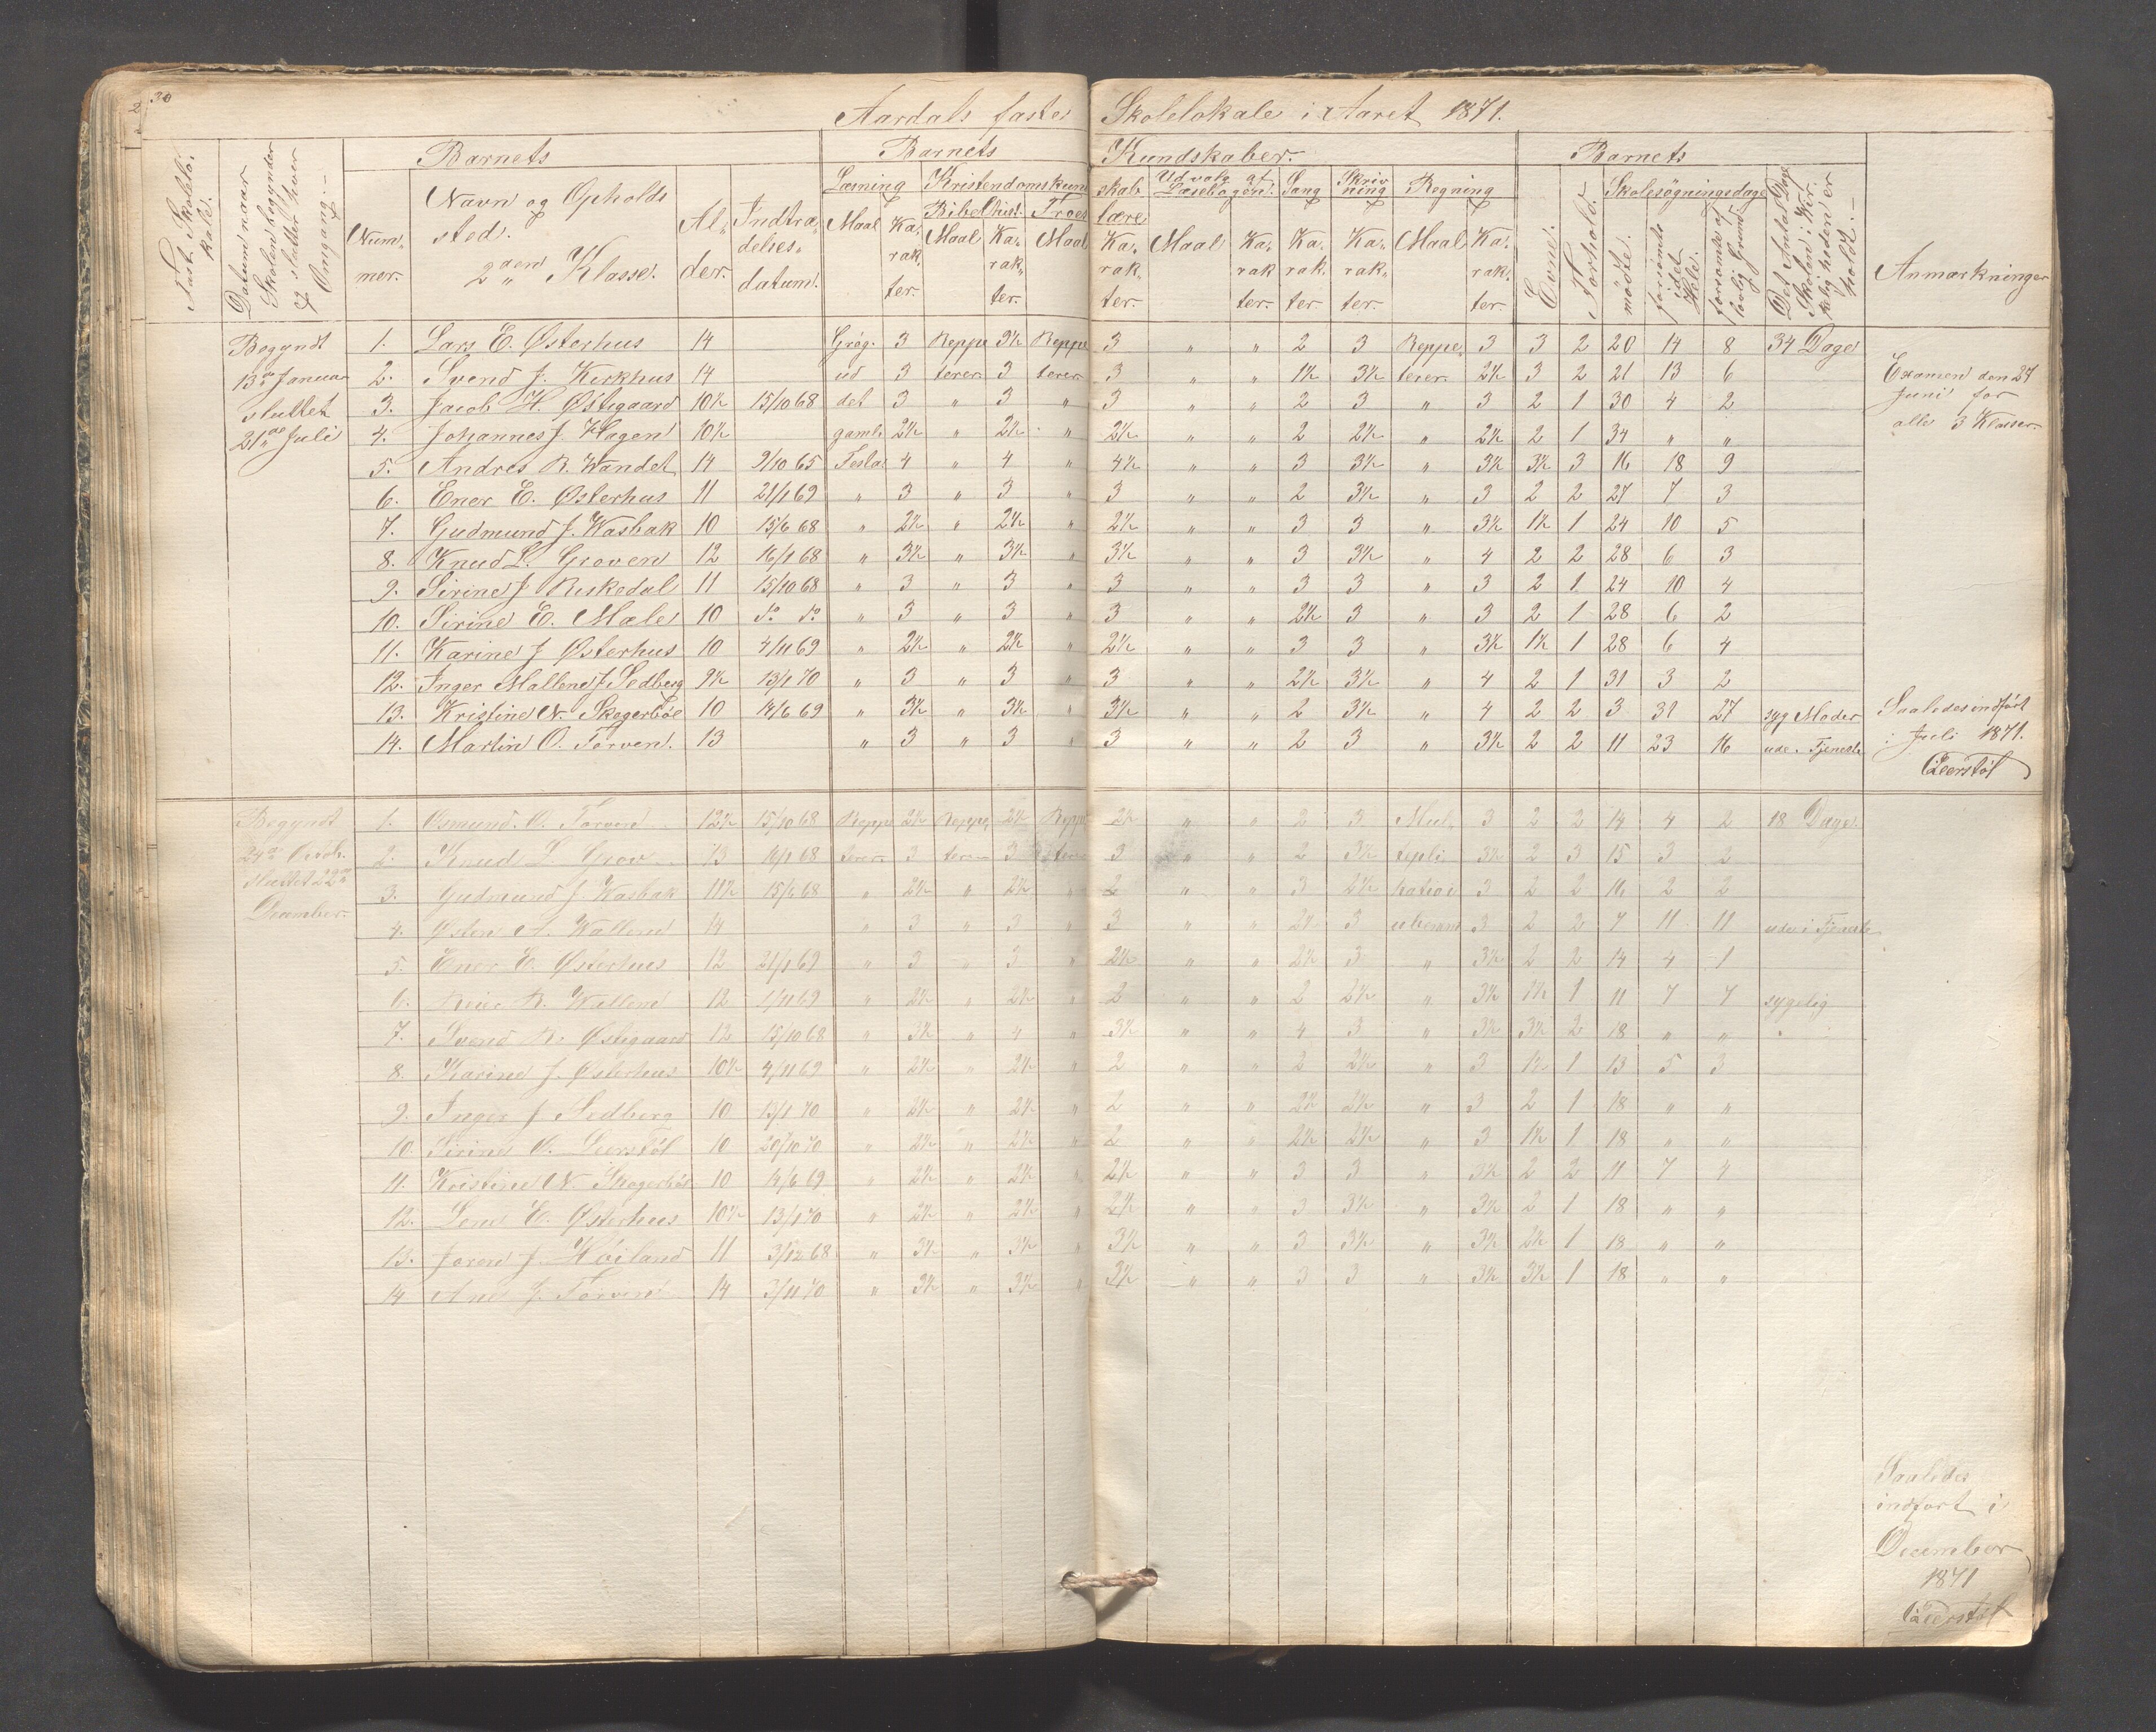 30
Aardals faste Skolelokale i Aaret 1871.
Fast. Skolelokale.
Datum naar Skolen begynder og slutter hver Omgang.-
Barnets
Barnets Kundskaber.
Barnets
Anmærkninger
Num- mer.
Navn og Opholds sted. 2den Klasse.
Al- der.
Indtræ- delses- datum.
Læsning Maal Ka- rak- ter.
Kristendomskundskab.
Bibelhist. Maal Ka- rak- ter.
Troeslære Maal Ka- rak- ter.
Udvalg af Læsebogen. Maal Ka- rak ter.
Sang Ka- rak. ter
Skriv ning Ka- rak- ter.
Regning Maal Ka- rak- ter.
Evne. Forhold.
Skolesøgningsdage
mødte. forsømte i det Hele. forsømte af lovlig Grund.
Det Antal Dage Skolen i Vir- kelig heden er holdt.-
Begyndt 13de Januar sluttet 21de Juli
1. Lars E. Østerhus 14 Grøg. 3 Reppe 3½ Reppe 3 " " 2 3 Reppe 3 3 2 20 14 8 34 Dage
2. Svend J. Kirkhus 14 ud 3 terer 3 terer 3 " " 1½ 3½ terer 2½ 3 2 21 13 6
Examen den 27 Juni for alle 3 Klasser.
3. Jacob H. Østigaard 10½ 15/10 68 det 3 " 3 " 3 " " 2 3 " 3 2 1 30 4 2
4. Johannes J. Hagen 10½ gamle 2½ " 2½ " 2½ " " 2 2½ " 2½ 2 1 34 " "
5. Andres R. Wandet 14 9/10 65 Testa 4 " 4 " 4½ " " 3 3½ " 3½ 3½ 3 16 18 9
6. Ener E. Østerhus 11 21/1 69 " 3 " 3 " 3 " " 2 3½ " 3 2 2 27 7 3
7. Gudmund J. Wasbak 10 15/6 68 " 2½ " 2½ " 2½ " " 3 3 " 3½ 1½ 1 24 10 5
8. Knud L. Groven 12 16/1 68 " 3½ " 3½ " 3½ " " 3 3½ " 4 2 2 28 6 3
9. Sirine J Riskedal 11 15/10 68 " 3 " 3 " 3 " " 3 3 " 3 2 1 24 10 4
10. Sirine E. Mæle 10 do do " 3 " 3 " 3 " " 2½ 3 " 3 2 1 28 6 2
11. Karine J Østerhus 10 4/11 69 " 2½ " 2½ " 2½ " " 3 3 " 3½ 1½ 1 28 6 4
12. Inger Mallene J Sedberg 9½ 13/1 70 " 3 " 3 " 3 " " 2½ 3½ " 4 2 1 31 3 2
13. Kristine N. Skogerbøe 10 14/6 69 " 3½ " 3½ " 3½ " " 2 3½ " 4 2 2 3 31 27 syg Moder
14. Martin O. Torven. 13 " 3 " 3 " 3 " " 2 3 " 3½ 2 2 11 23 16 ude i Tjeneste
Saaledes indført i Juli 1871.
Begyndt 24de Octob. sluttet 22de December.
1. Osmund. O. Torven 12½ 15/10 68 Reppe 2½ Reppe 2½ Reppe 2½ " " 2 3 Mul 3 2 2 14 4 2 18 Dage.
2. Knud L. Grov 13 16/1 68 terer 3 terer 3 terer 3 " " 2 3½ tepli 3½ 2 3 15 3 2
3. Gudmund J. Wasbak 11½ 15/6 68 " 2½ " 2½ " 2 " " 3 2½ kation 3 2 2 16 2 2
4. Østen A. Wallend 14 " 3 " 3 " 3 " " 2½ 3 ubenævn 3 2 2 7 11 11 ude i Tjeneste
5. Ener E. Østerhus 12 21/1 69 " 3 " 3 " 2½ " " 2½ 3 " 3½ 2 2 14 4 1
6. R. Wallend 12 1/11 69 " 2½ " 2½ " 2 " " 2 2½ " 3½ 1½ 1 11 7 7 sygelig
7. Svend R. Østigaard 12 15/10 68 " 3½ " 4 " 3½ " " 4 3 " 3½ 3½ 2 18 " "
8. Karine J. Østerhus 10½ 4/11 69 " 2½ " 2½ " 2 " " 2 2½ " 3 1½ 1 13 5 3
9. Inger J Sedberg 10 13/1 70 " 2½ " 2½ " 2 " " 2½ 2½ " 3 2 1 18 " "
10. Sirine O. Leerstøl 10 20/10 70 " 2½ " 2½ " 2 " " 2½ 2½ " 3 1½ 1 18 " "
11. Kristine N. Skogerbøe 10 14/6 69 " 2½ " 2½ " 2½ " " 3 3 " 3½ 2 2 11 7 4
12. Lene E. Østerhus 10½ 13/1 70 " 2½ " 2½ " 2½ " " 3 3½ " 3½ 2 1 18 " "
13. Joren J. Høiland 11 3/12 68 " 3½ " 3½ " 3½ " " 3 3½ " 3½ 2½ 1 18 " "
14 Ane J. Torven 14 3/11 70 " 3½ " 3½ " 3½ " " 3 3 " 3½ 3½ 1 18 " "
Saaledes
indført i
December
1871